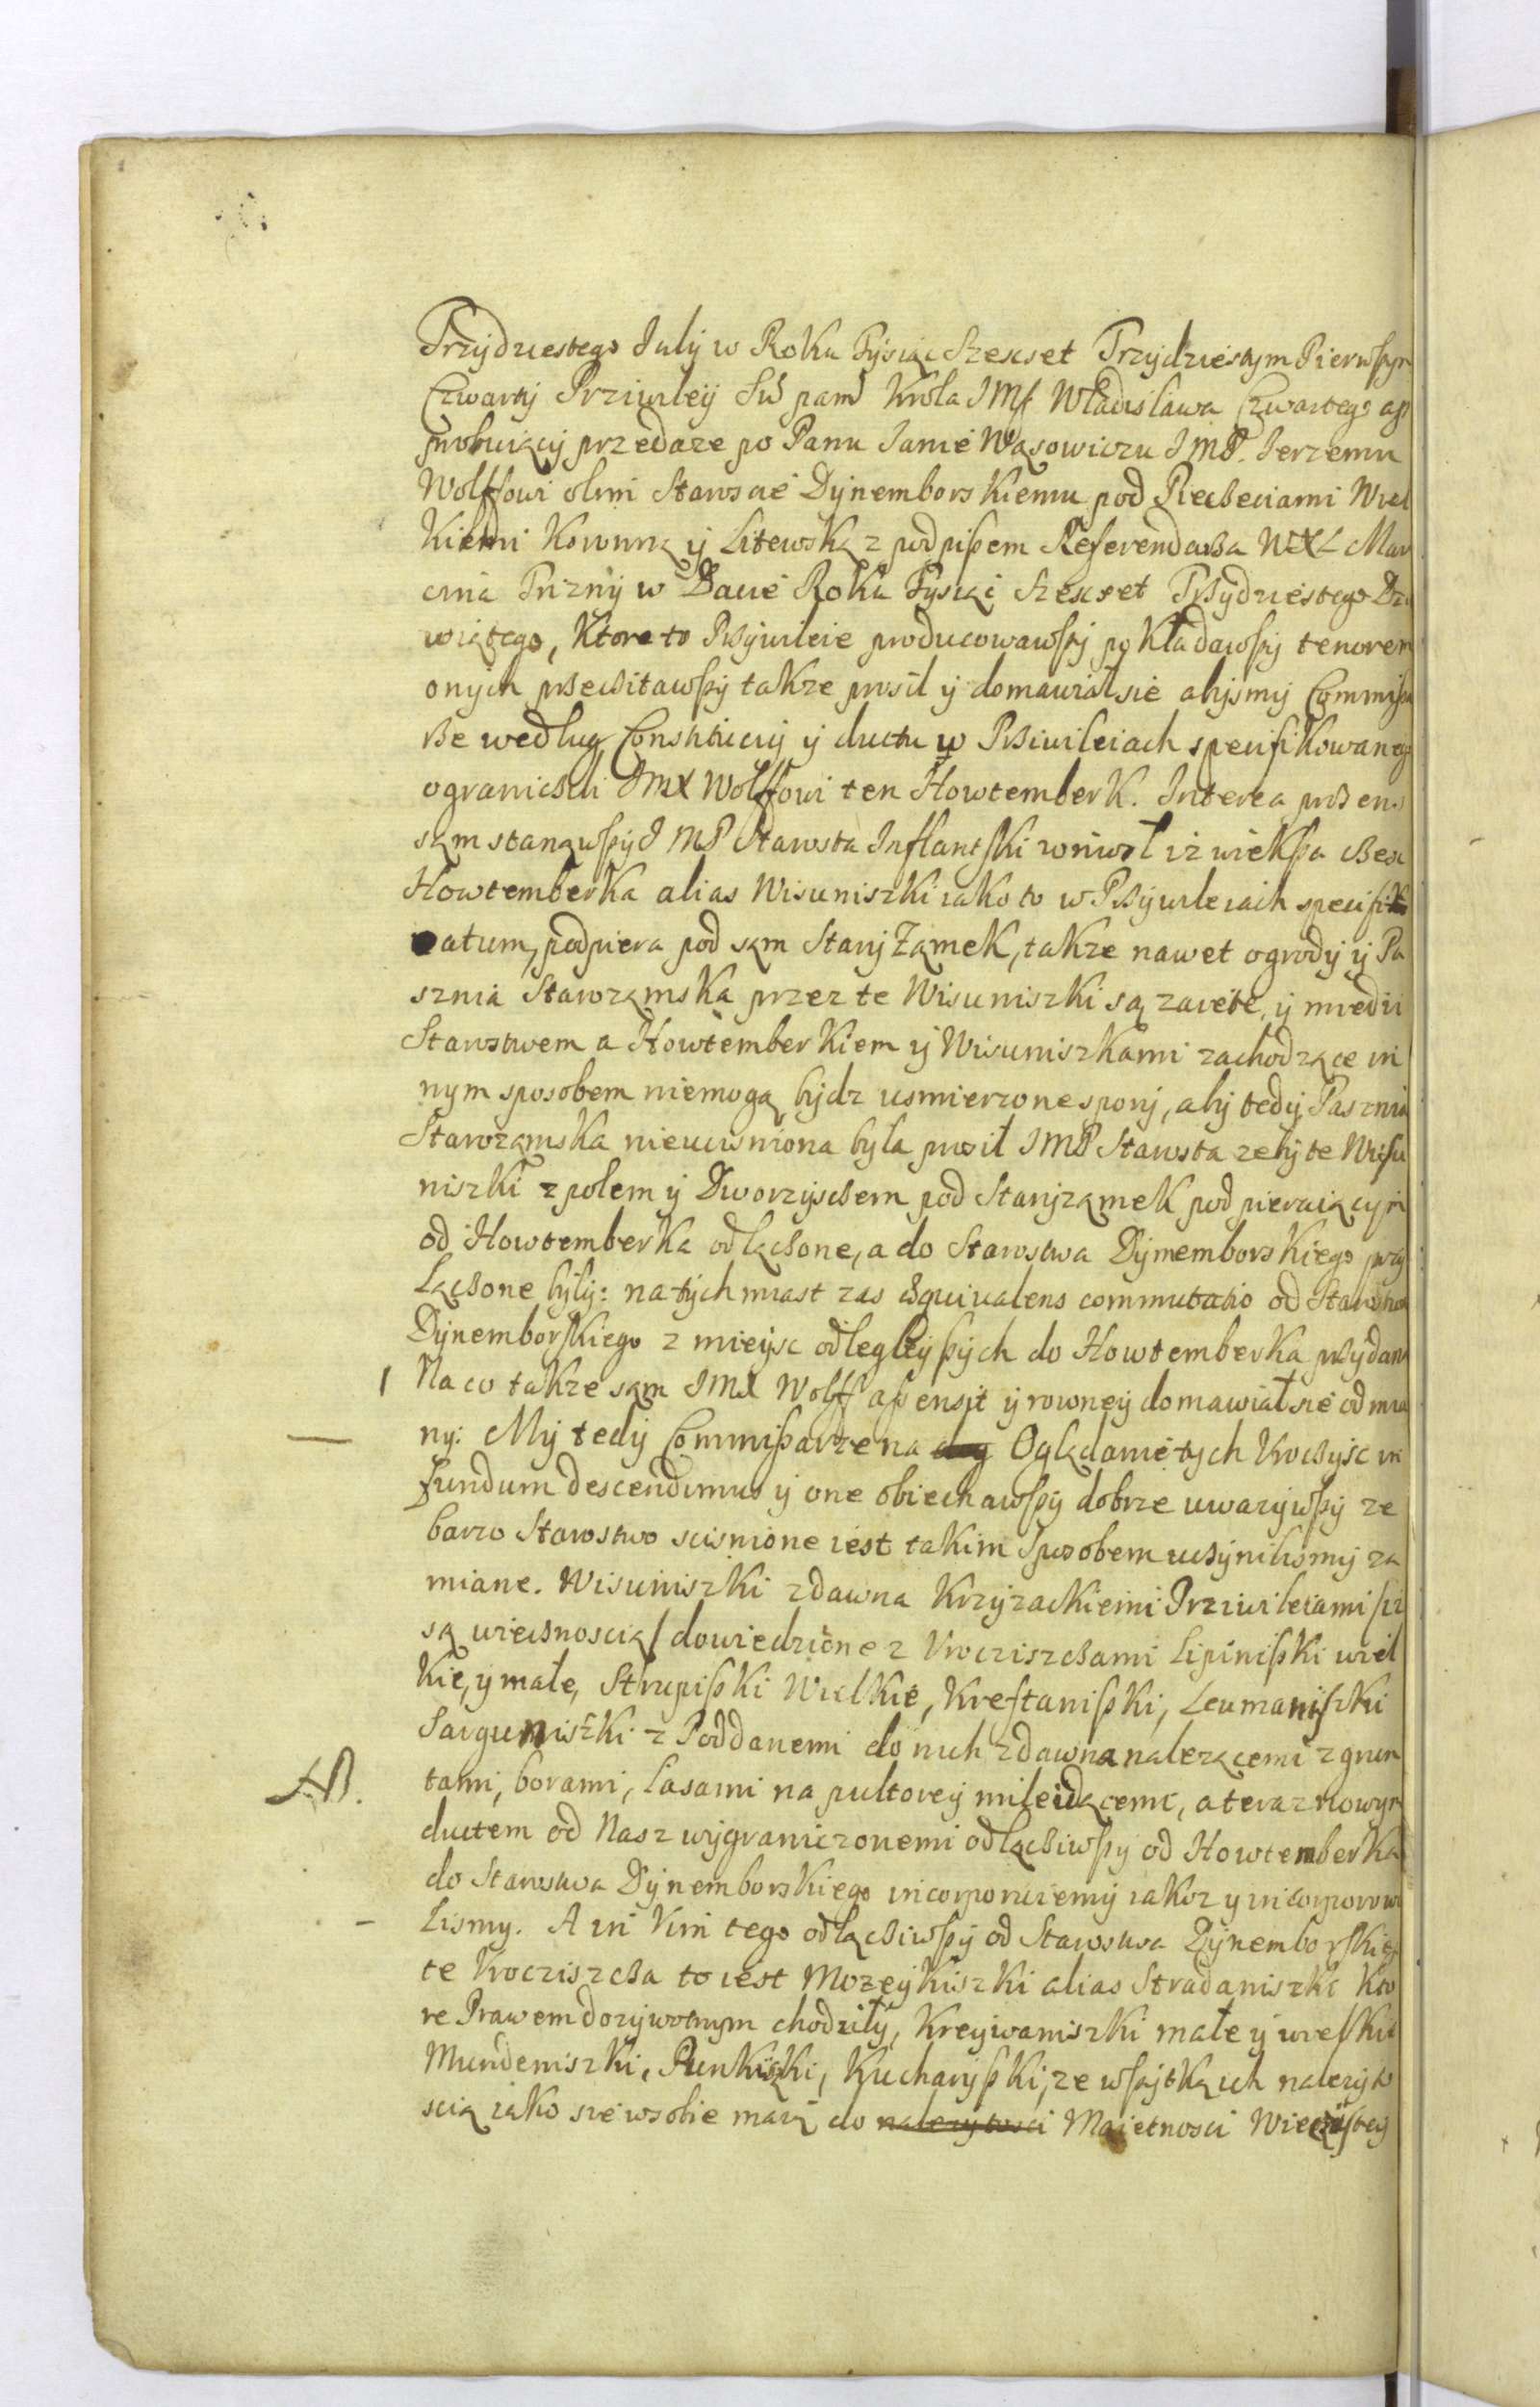 Trzydziestego July w Roku Tysiąc Szescset Trzydziestym Pierwszym
Czwarty Prziwiley Sw pam Krola JMſ Władisława Czwartego ap
probuiący przedaze po Panu Janie Wąsowiczu JMP. Jerzemu
Wolffowi olim Staroscie Dynemborskiemu pod Pieczęciami Wiel
kiemi Koronną y Litewską z podpisem Referendarza WXL Mar
cina Trizny w Dacie Roku Tysiąc Szescset Trzydziestego Dzie
wiątego, Ktore to Przywileie producowawszy pokładawszy tenorem
onych przeczitawszy takze prosił y domawiał sie abysmy Commissa
rze według Constitucij y ductu w Prziwileiach specifikowanego
ograniczeli JMX Wolffowi ten Howtemberk. Interea przens
sąm stanąwszy JMP Starosta Inflantski wniosł iz wieksza czesc
Howtemberka alias Wisuniszki iako to w Przywileiach specifi
catum, podpiera pod sąm Stary Zamek, takze nawet ogrody y Pa
sznia Starozamska przez te Wisuniszki są zaięte, y miedzi
Starostwem a Howtemberkiem y Wisuniszkami zachodzące in
nym sposobem niemogą bydz usmierzone spory, aby tedy Pasznia
Starozamska nieucisniona była prosił JMP Starosta zeby te Wisu
niszki z polem y Dworzysczem pod Staryzamek podpieraiącym
od Howtemberka odłączone, a do Starostwa Dynemborskiego przy
łączone były: natychmiast zas æquivalens commutatio od Starostwa
Dynemborskiego z mieysc odlegleyszych do Howtemberka przydane
Na co takze sąm JMX Wolff assensit y rowney domawiał sie odmia
ny: My tedy Commissarze na Oglądanie tych Vroczysc in
fundum descendimus y one obiechawszy dobrze uwazywszy ze
barzo Starostwo scisnione iest takim sposobem uczynilismy za
miane. Wisuniszki zdawna Krzyzackiemi Prziwileiami iz
są wiecznoscią dowiedzione z Vrocziszczami Lipiniszki wiel
kie, y małe, Strupiszki Wielkie, Krestaniszki, Leumaniszki
Sarguniszki z Poddanemi do nich zdawna nalezącemi z grun
tami, borami, Lasami na pułtorey mile idącemi, a teraz nowym
ductem od Nas z wygraniczonemi odłącziwszy od Howtemberka
do Starostwa Dynemborskiego incorporuiemy iakoz y incorporowa
lismy. A in vim tego odłącziwszy od Starostwa Dynemborskiego
te Vrocziszcza to iest Mozeykiszki alias Stradaniszki Kto
re Prawem dozywotnym chodziły, Kreywaniszki małe y wielkie
Mundeniszki, Punkiszki, Kucharyszki, ze wszytką ich nalezyto
scią iako sie w sobie maią do nalezytosci Maietnosci Wieczistey